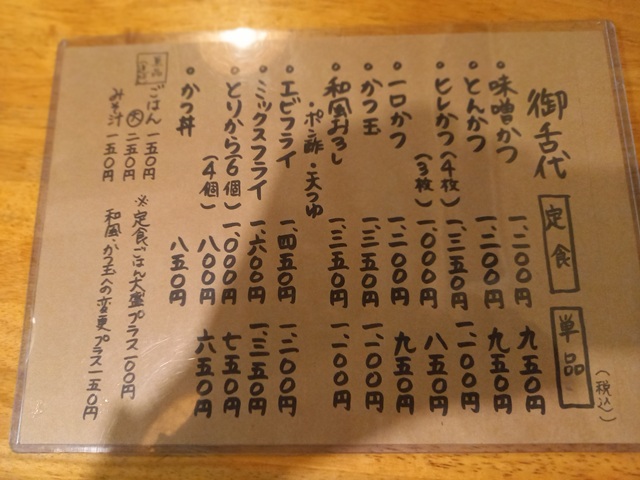 御舌代 定食 単品 (税込)
・味噌かつ 一、二〇〇円 九五〇円
・とんかつ 一、二〇〇円 九五〇円
・ヒレかつ(4枚) 一、三五〇円 一、一〇〇円
(3枚) 一、〇〇〇円 八五〇円
・一口かつ 一、二〇〇円 九五〇円
・かつ玉 一、三五〇円 一、一〇〇円
・和風おろし 一、三五〇円 一、一〇〇円
・ポン酢・天つゆ
・エビフライ 一、四五〇円 一、二〇〇円
・ミックスフライ 一、六〇〇円 一、三五〇円
・とりから(6個) 一、〇〇〇円 七五〇円
(4個) 八〇〇円 六五〇円
・かつ丼 八五〇円
単品
ごはん 一五〇円
大 二五〇円
みそ汁 一五〇円
※定食ごはん大盛プラス一〇〇円
和風、かつ玉への変更プラス一五〇円